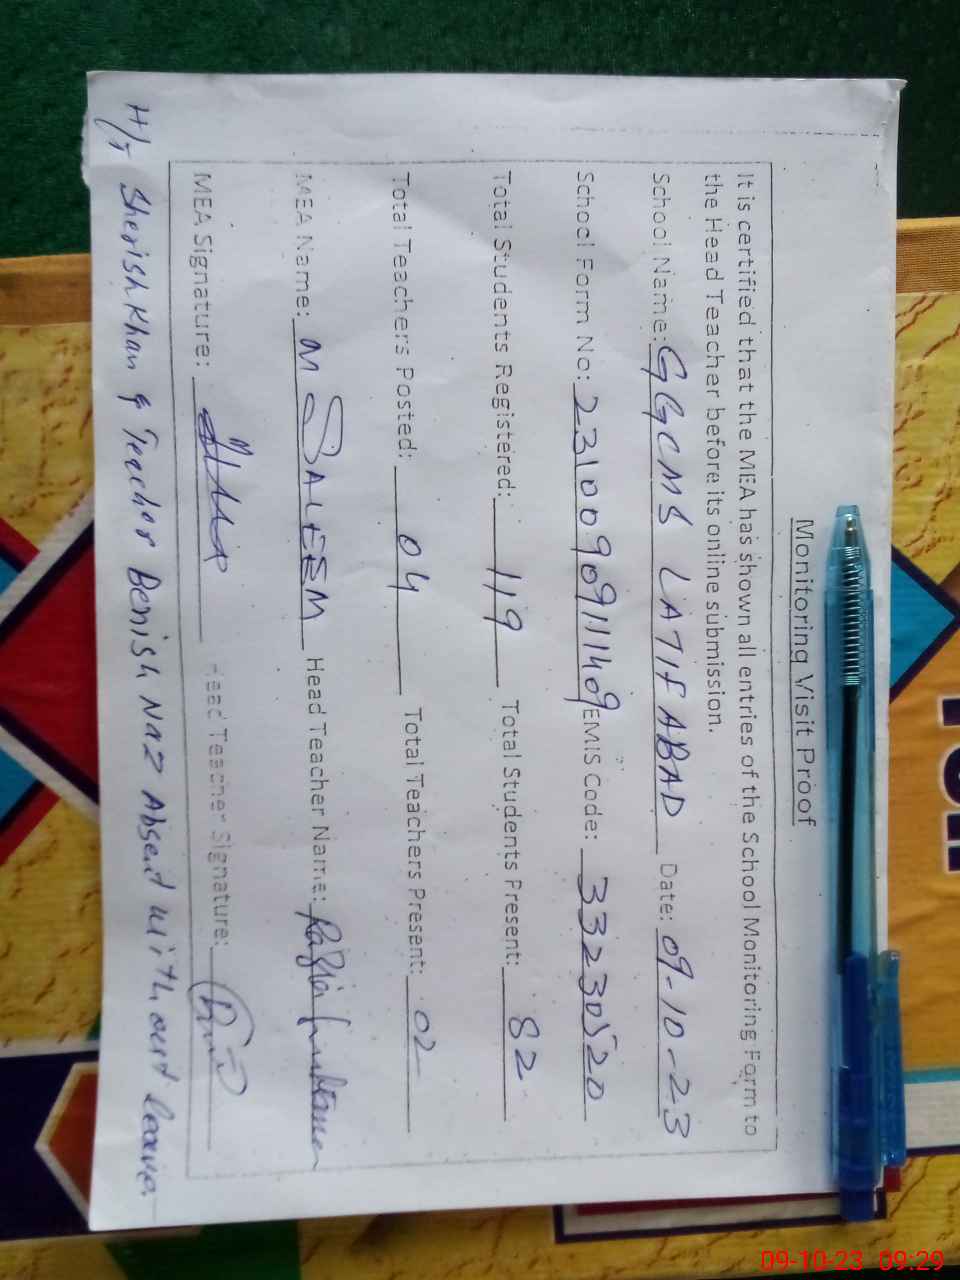 Monitoring Visit Proof
It is certified that the MEA has shown all entries of the School Monitoring Form to
the Head Teacher before its online submission.
School Name: GGCMS LATIFABAD Date: 09-10-23
School Form No: 23100909111409 EMIS Code: 33230520
Total Students Registered: 119 Total Students Present: 82
Total Teachers Posted: 04 Total Teachers Present: 02
MEA Name: M SALEEM Head Teacher Name: Razia
MEA Signature: Head Teacher Signature:
H/T Sherish Khan & Teacher Benish Naz Absent without leave.
09-10-23 09:29